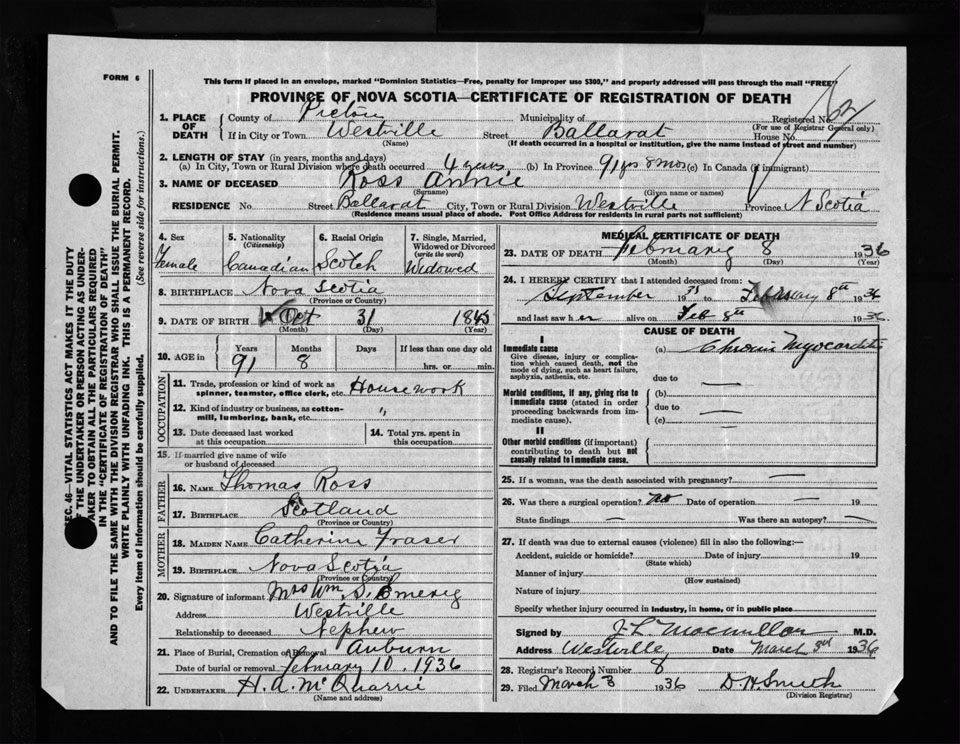 FORM 6
This form if placed in an envelope, marked "Dominion Statistics—Free, penalty for improper use $300," and properly addressed will pass through the mail "FREE"
PROVINCE OF NOVA SCOTIA—CERTIFICATE OF REGISTRATION OF DEATH
1. PLACE OF DEATH County of Pictou Municipality of Registered No.
(For use of Registrar General only)
If in City or Town Westville Street Ballarat House No.
(Name) (If death occurred in a hospital or institution, give the name instead of street and number)
2. LENGTH OF STAY (in years, months and days)
(a) In City, Town or Rural Division where death occurred 4 years (b) In Province 91 yrs 8 mos (c) In Canada (if immigrant)
3. NAME OF DECEASED Ross Annie
(Surname) (Given name or names)
RESIDENCE No. Street Ballarat City, Town or Rural Division Westville Province N Scotia
(Residence means usual place of abode. Post Office Address for residents in rural parts not sufficient)
4. Sex Female
5. Nationality (Citizenship) Canadian
6. Racial Origin Scotch
7. Single, Married, Widowed or Divorced (write the word) Widowed
8. BIRTHPLACE Nova Scotia
(Province or Country)
9. DATE OF BIRTH Oct 31
(Month) (Day) (Year)
10. AGE in Years Months Days If less than one day old
91 8 hrs. or min.
OCCUPATION
11. Trade, profession or kind of work as spinner, teamster, office clerk, etc. Housework
12. Kind of industry or business, as cotton-mill, lumbering, bank, etc. "
13. Date deceased last worked at this occupation
14. Total yrs. spent in this occupation
15. If married give name of wife or husband of deceased
FATHER
16. NAME Thomas Ross
17. BIRTHPLACE Scotland
(Province or Country)
MOTHER
18. MAIDEN NAME Catherine Fraser
19. BIRTHPLACE Nova Scotia
(Province or Country)
20. Signature of informant Mrs Wm. S.
Address Westville
Relationship to deceased Nephew
21. Place of Burial, Cremation or Removal Auburn
Date of burial or removal February 10, 1936
22. UNDERTAKER H. A. McQuarrie
(Name and address)
MEDICAL CERTIFICATE OF DEATH
23. DATE OF DEATH February 8 1936
(Month) (Day) (Year)
24. I HEREBY CERTIFY that I attended deceased from:
September 1935 to February 8th 1936
and last saw her alive on Feb 8th 1936
CAUSE OF DEATH
I
Immediate cause
Give disease, injury or complication which caused death, not the mode of dying, such as heart failure, asphyxia, asthenia, etc.
(a) Chronic Myocarditis
due to —
Morbid conditions, if any, giving rise to immediate cause (stated in order proceeding backwards from immediate cause).
(b)
due to —
(c) —
II
Other morbid conditions (if important) contributing to death but not causally related to immediate cause.
25. If a woman, was the death associated with pregnancy? —
26. Was there a surgical operation? no Date of operation — 19
State findings — Was there an autopsy? —
27. If death was due to external causes (violence) fill in also the following:—
Accident, suicide or homicide? Date of injury 19
(State which)
Manner of injury
(How sustained)
Nature of injury
Specify whether injury occurred in industry, in home, or in public place
Signed by J. L. Macmillan M.D.
Address Westville Date March 3rd 1936
28. Registrar's Record Number 8
29. Filed March 3 1936 D. H. Smith
(Division Registrar)
SEC. 46—VITAL STATISTICS ACT MAKES IT THE DUTY
OF THE UNDERTAKER OR PERSON ACTING AS UNDER-
TAKER TO OBTAIN ALL THE PARTICULARS REQUIRED
IN THE "CERTIFICATE OF REGISTRATION OF DEATH"
AND TO FILE THE SAME WITH THE DIVISION REGISTRAR WHO SHALL ISSUE THE BURIAL PERMIT.
WRITE PLAINLY WITH UNFADING INK. THIS IS A PERMANENT RECORD.
Every item of information should be carefully supplied. (See reverse side for instructions.)